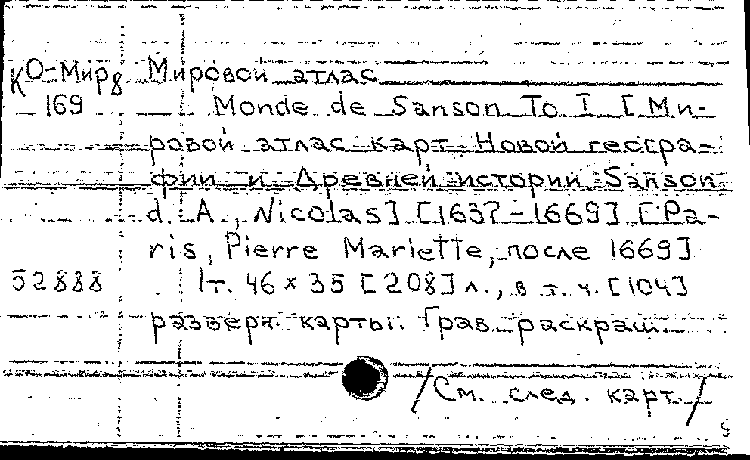 КО-Мир8 Мировой атлас
169 Monde de Sanson To I [Ми-
ровой атлас карт Новой геогра-
фии и Древней истории Sanson
d. A., Nicolas] [1637-1669] [Pa-
ris, Pierre Mariette, после 1669]
52888 1т. 46 х 35 [208] л., в т. ч. [104]
разверн. карты. Грав. раскраш.
/См. след. карт./